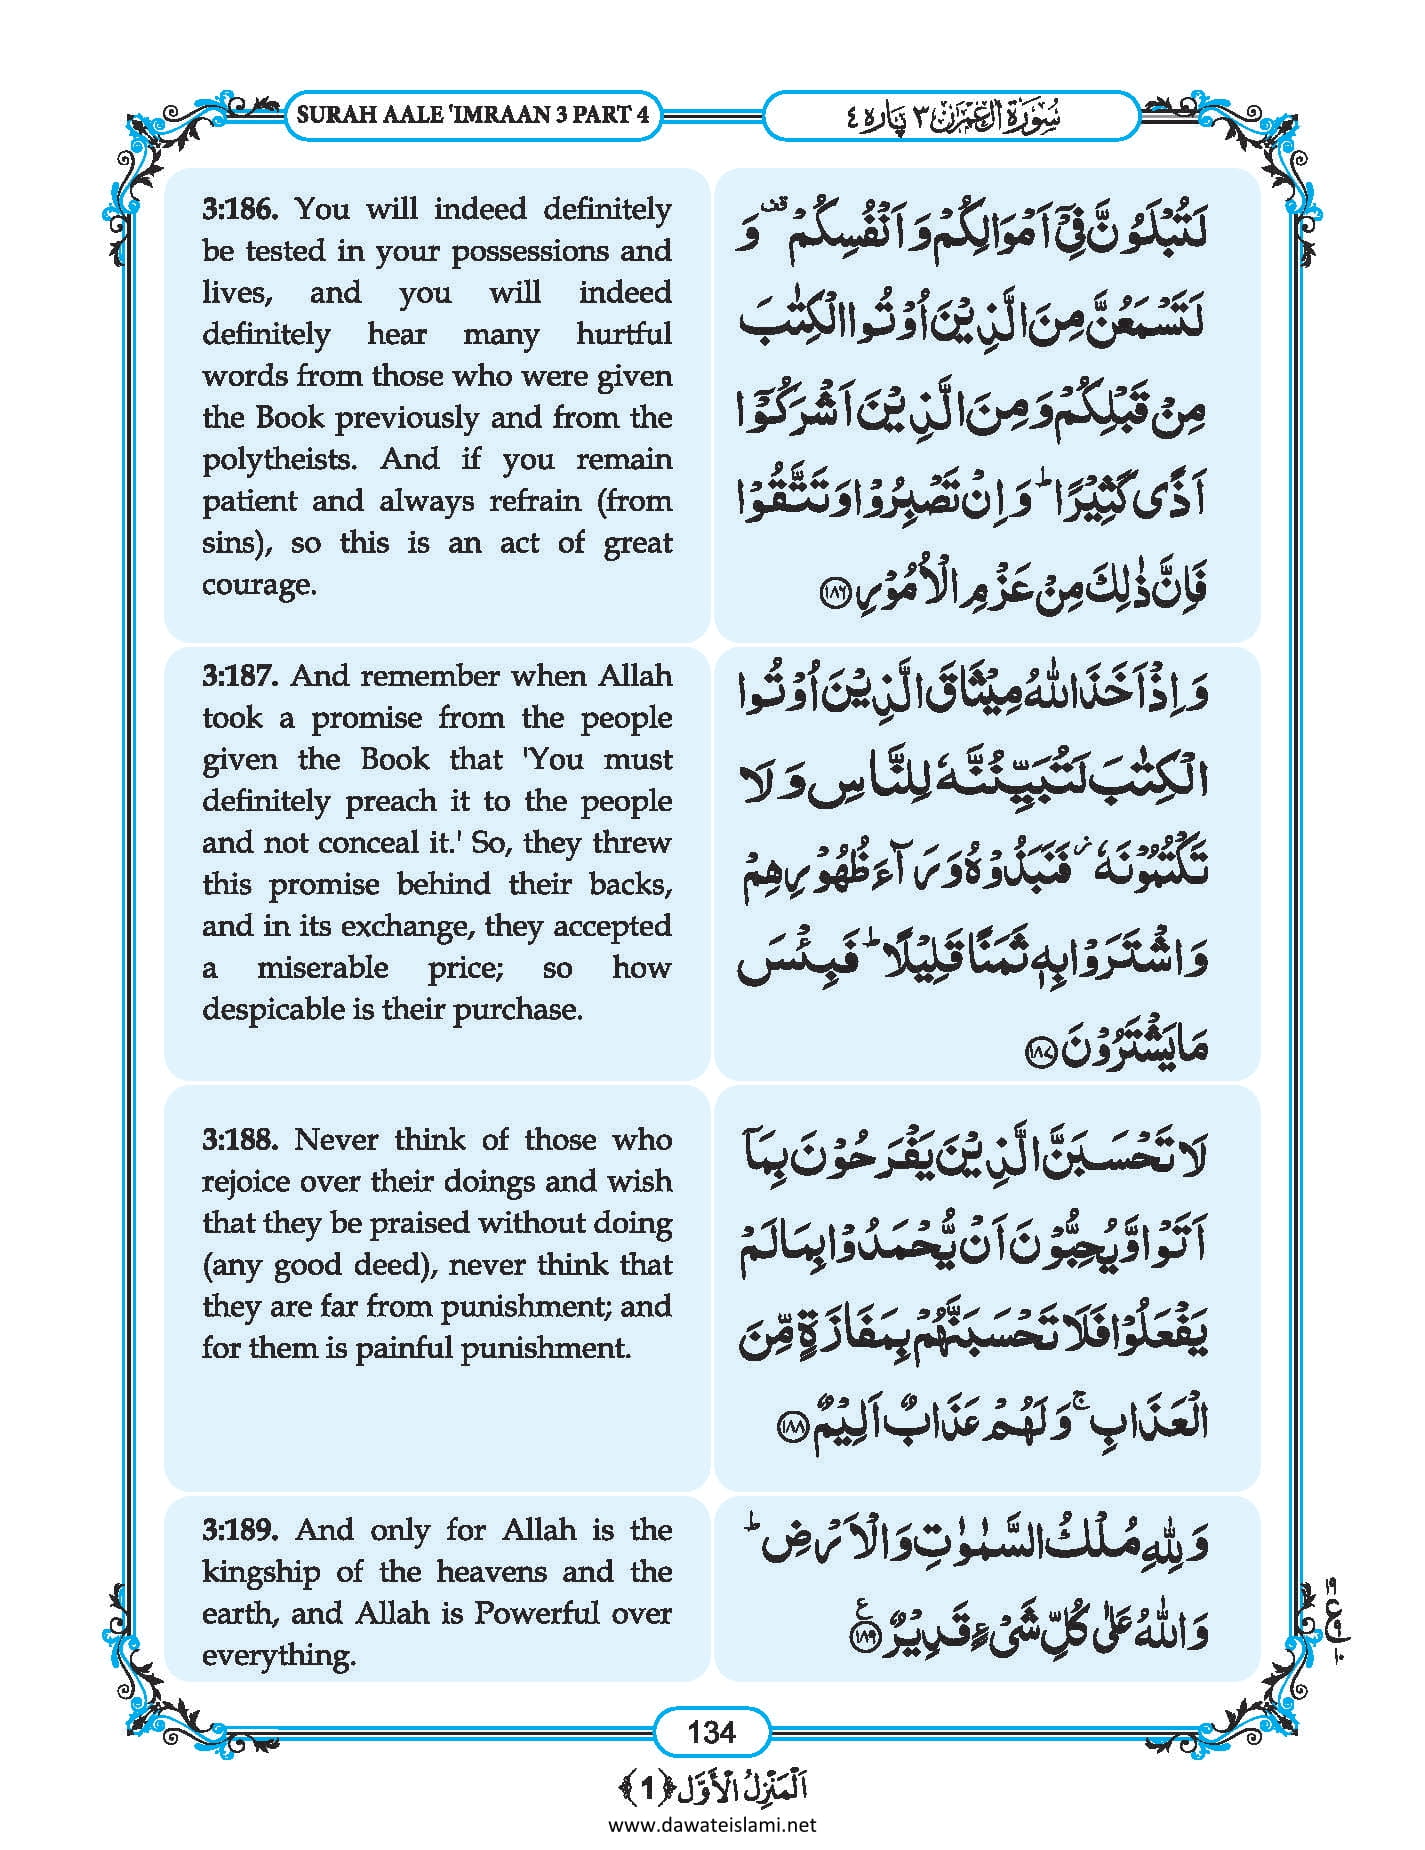 SURAH AALE 'IMRAAN 3 PART 4
سُوْرَةُ اٰلِ عِمْرٰن ٣ پَارَہ ٤
3:186. You will indeed definitely
be tested in your possessions and
lives, and you will indeed
definitely hear many hurtful
words from those who were given
the Book previously and from the
polytheists. And if you remain
patient and always refrain (from
sins), so this is an act of great
courage.
لَتُبْلَوُنَّ فِيْۤ اَمْوَالِكُمْ وَ اَنْفُسِكُمْ ۫ وَ
لَتَسْمَعُنَّ مِنَ الَّذِيْنَ اُوْتُوا الْكِتٰبَ
مِنْ قَبْلِكُمْ وَ مِنَ الَّذِيْنَ اَشْرَكُوْۤا
اَذًى كَثِيْرًا ؕ وَ اِنْ تَصْبِرُوْا وَ تَتَّقُوْا
فَاِنَّ ذٰلِكَ مِنْ عَزْمِ الْاُمُوْرِ ﴿۱۸۶﴾
3:187. And remember when Allah
took a promise from the people
given the Book that 'You must
definitely preach it to the people
and not conceal it.' So, they threw
this promise behind their backs,
and in its exchange, they accepted
a miserable price; so how
despicable is their purchase.
وَ اِذْ اَخَذَ اللّٰهُ مِيْثَاقَ الَّذِيْنَ اُوْتُوا
الْكِتٰبَ لَتُبَيِّنُنَّهٗ لِلنَّاسِ وَ لَا
تَكْتُمُوْنَهٗ ۫ فَنَبَذُوْهُ وَرَآءَ ظُهُوْرِهِمْ
وَ اشْتَرَوْا بِهٖ ثَمَنًا قَلِيْلًا ؕ فَبِئْسَ
مَا يَشْتَرُوْنَ ﴿۱۸۷﴾
3:188. Never think of those who
rejoice over their doings and wish
that they be praised without doing
(any good deed), never think that
they are far from punishment; and
for them is painful punishment.
لَا تَحْسَبَنَّ الَّذِيْنَ يَفْرَحُوْنَ بِمَاۤ
اَتَوْا وَّ يُحِبُّوْنَ اَنْ يُّحْمَدُوْا بِمَا لَمْ
يَفْعَلُوْا فَلَا تَحْسَبَنَّهُمْ بِمَفَازَةٍ مِّنَ
الْعَذَابِ ۚ وَ لَهُمْ عَذَابٌ اَلِيْمٌ ﴿۱۸۸﴾
3:189. And only for Allah is the
kingship of the heavens and the
earth, and Allah is Powerful over
everything.
وَ لِلّٰهِ مُلْكُ السَّمٰوٰتِ وَ الْاَرْضِ ؕ
وَ اللّٰهُ عَلٰى كُلِّ شَیْءٍ قَدِيْرٌ ﴿۱۸۹﴾ ع
134
اَلْمَنْزِلُ الْاَوَّل ﴿1﴾
www.dawateislami.net